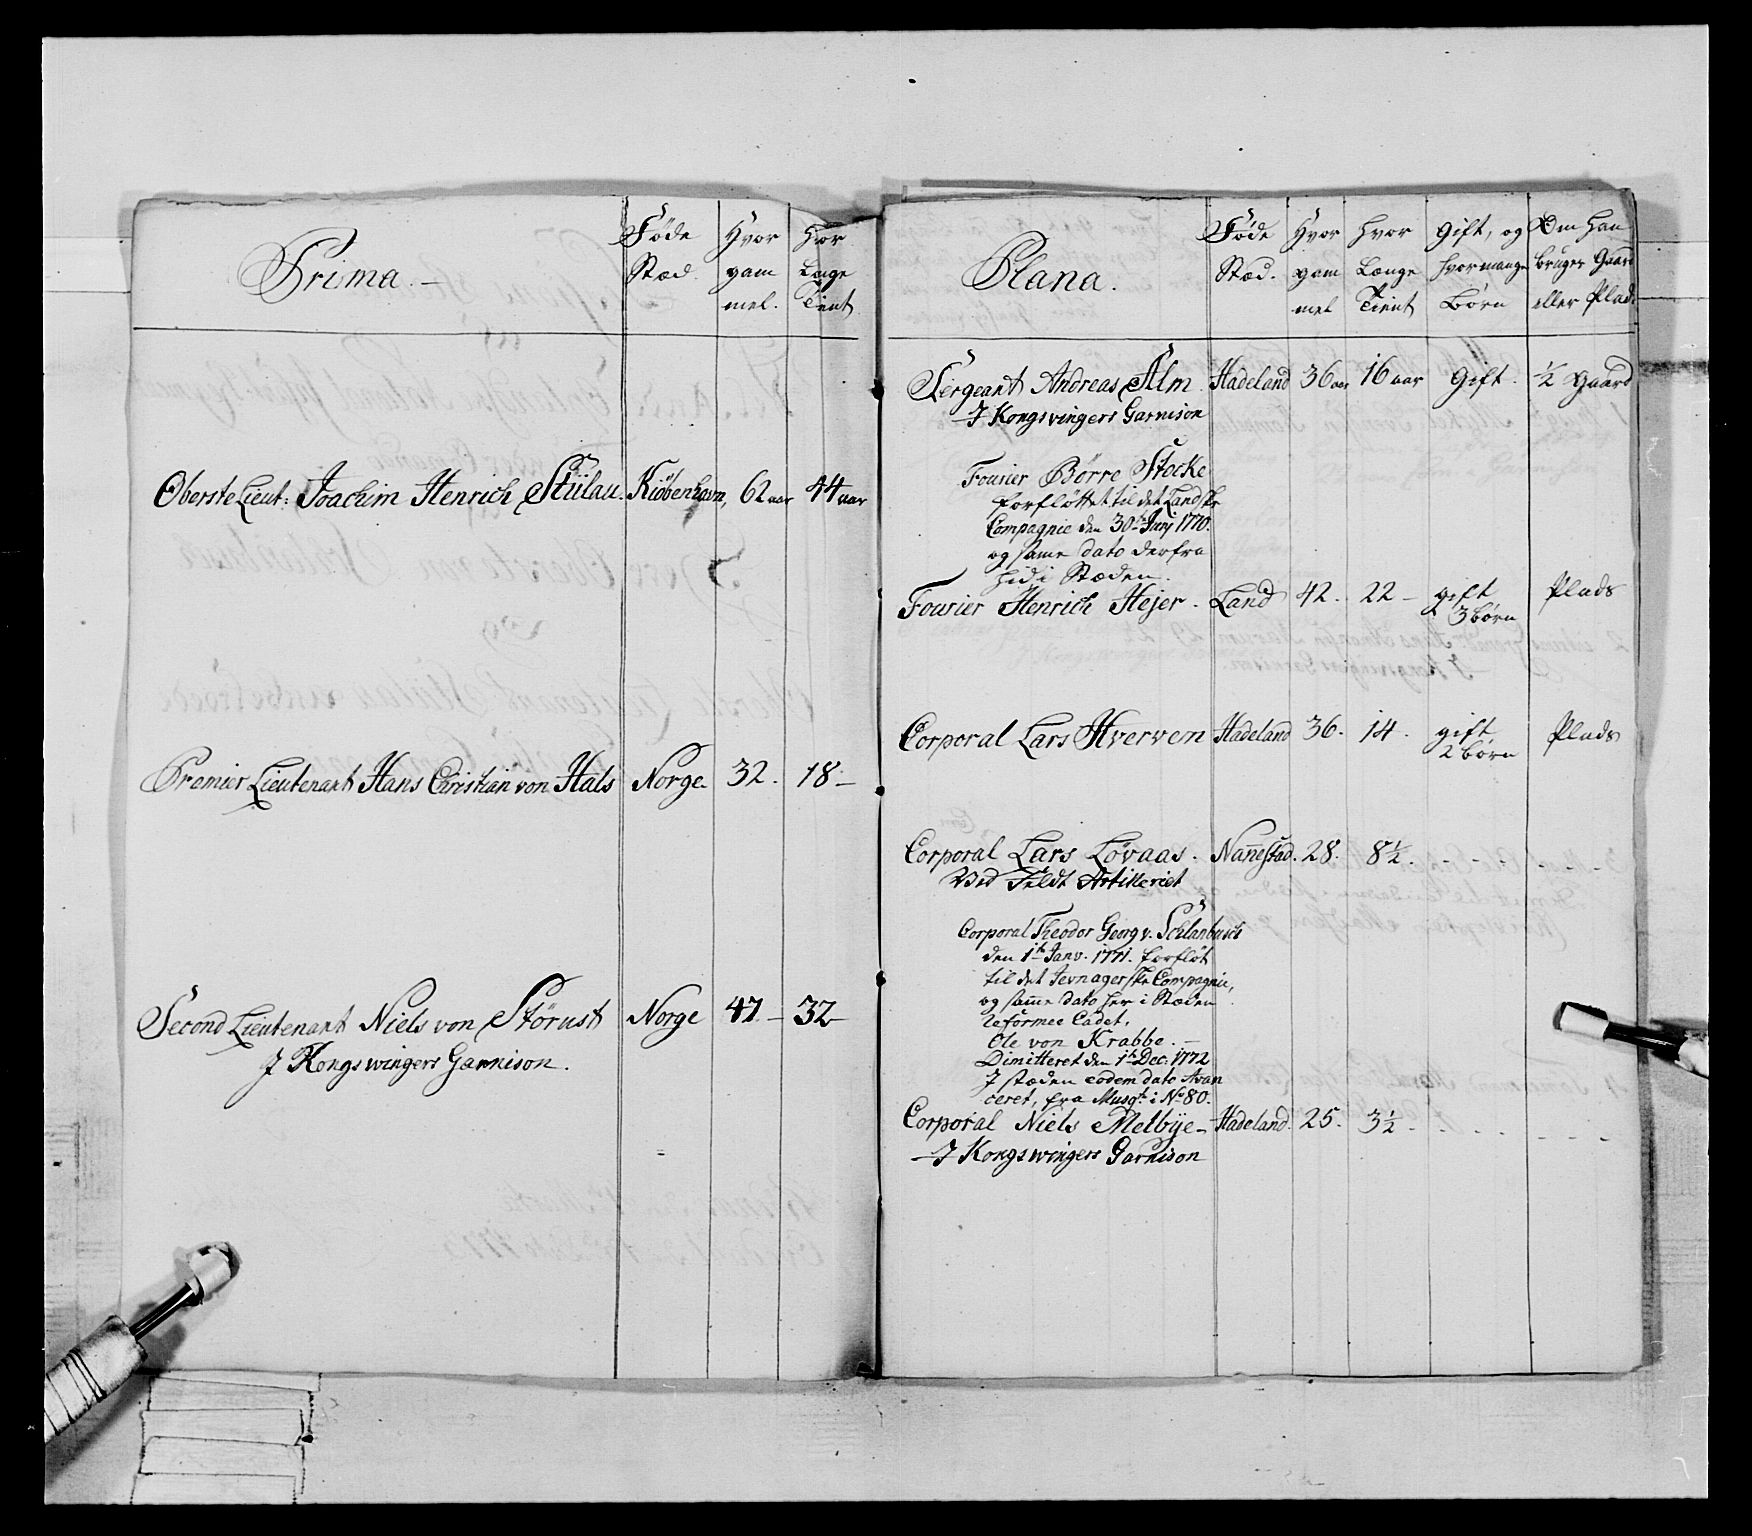 Prima.
Føde Stæd
Hvor gam mel.
Hvor Lenge Tient
Oberste Lieut: Joachim Henrich Stülau. Kiöbenhavn, 62 aar 44 aar
Premier Lieutenant Hans Christian von Hals Norge 32. 18 -
Second Lieutenant Niels von Störust Norge 47 - 32 -
J Kongswingers Garnison.
Plana.
Føde Stæd.
Hvor gam mel
Hvor Længe Tient
Gift, og hvormange Børn
Om han bruger Gaard eller Plads
Sergeant Andreas Alm. Hadeland 36 aar 16 aar Gift. ½ Gaard
J Kongsvingers Garnison
Fourier Börre Stocke
forfløttet til det Landske
Compagnie den 30te Junj 1770.
og same dato derfra
hid i Stæden.
Fourier Henrich Hejer. Land 42. 22 - gift 3 børn Plads
Corporal Lars Hverven Hadeland 36. 14. gift 2 børn Plads
Corporal Lars Lövaas. Nannestad. 28. 8½. - - - - -
Ved Feldt Artilleriet
Corporal Theodor Georg v. Schlanbusch
den 1te Janv. 1771. forfløt
til det Jevnagerske Compagnie,
og samme dato her i Stæden
Reformee Cadet,
Ole von Krabbe. -
Dimitteret den 1te Dec. 1772
J stæden eodem dato Avan
ceret, fra Musqt. i No 80.
Corporal Niels Melbye - Hadeland. 25. 3½ - - - - -
J Kongswingers Garnison